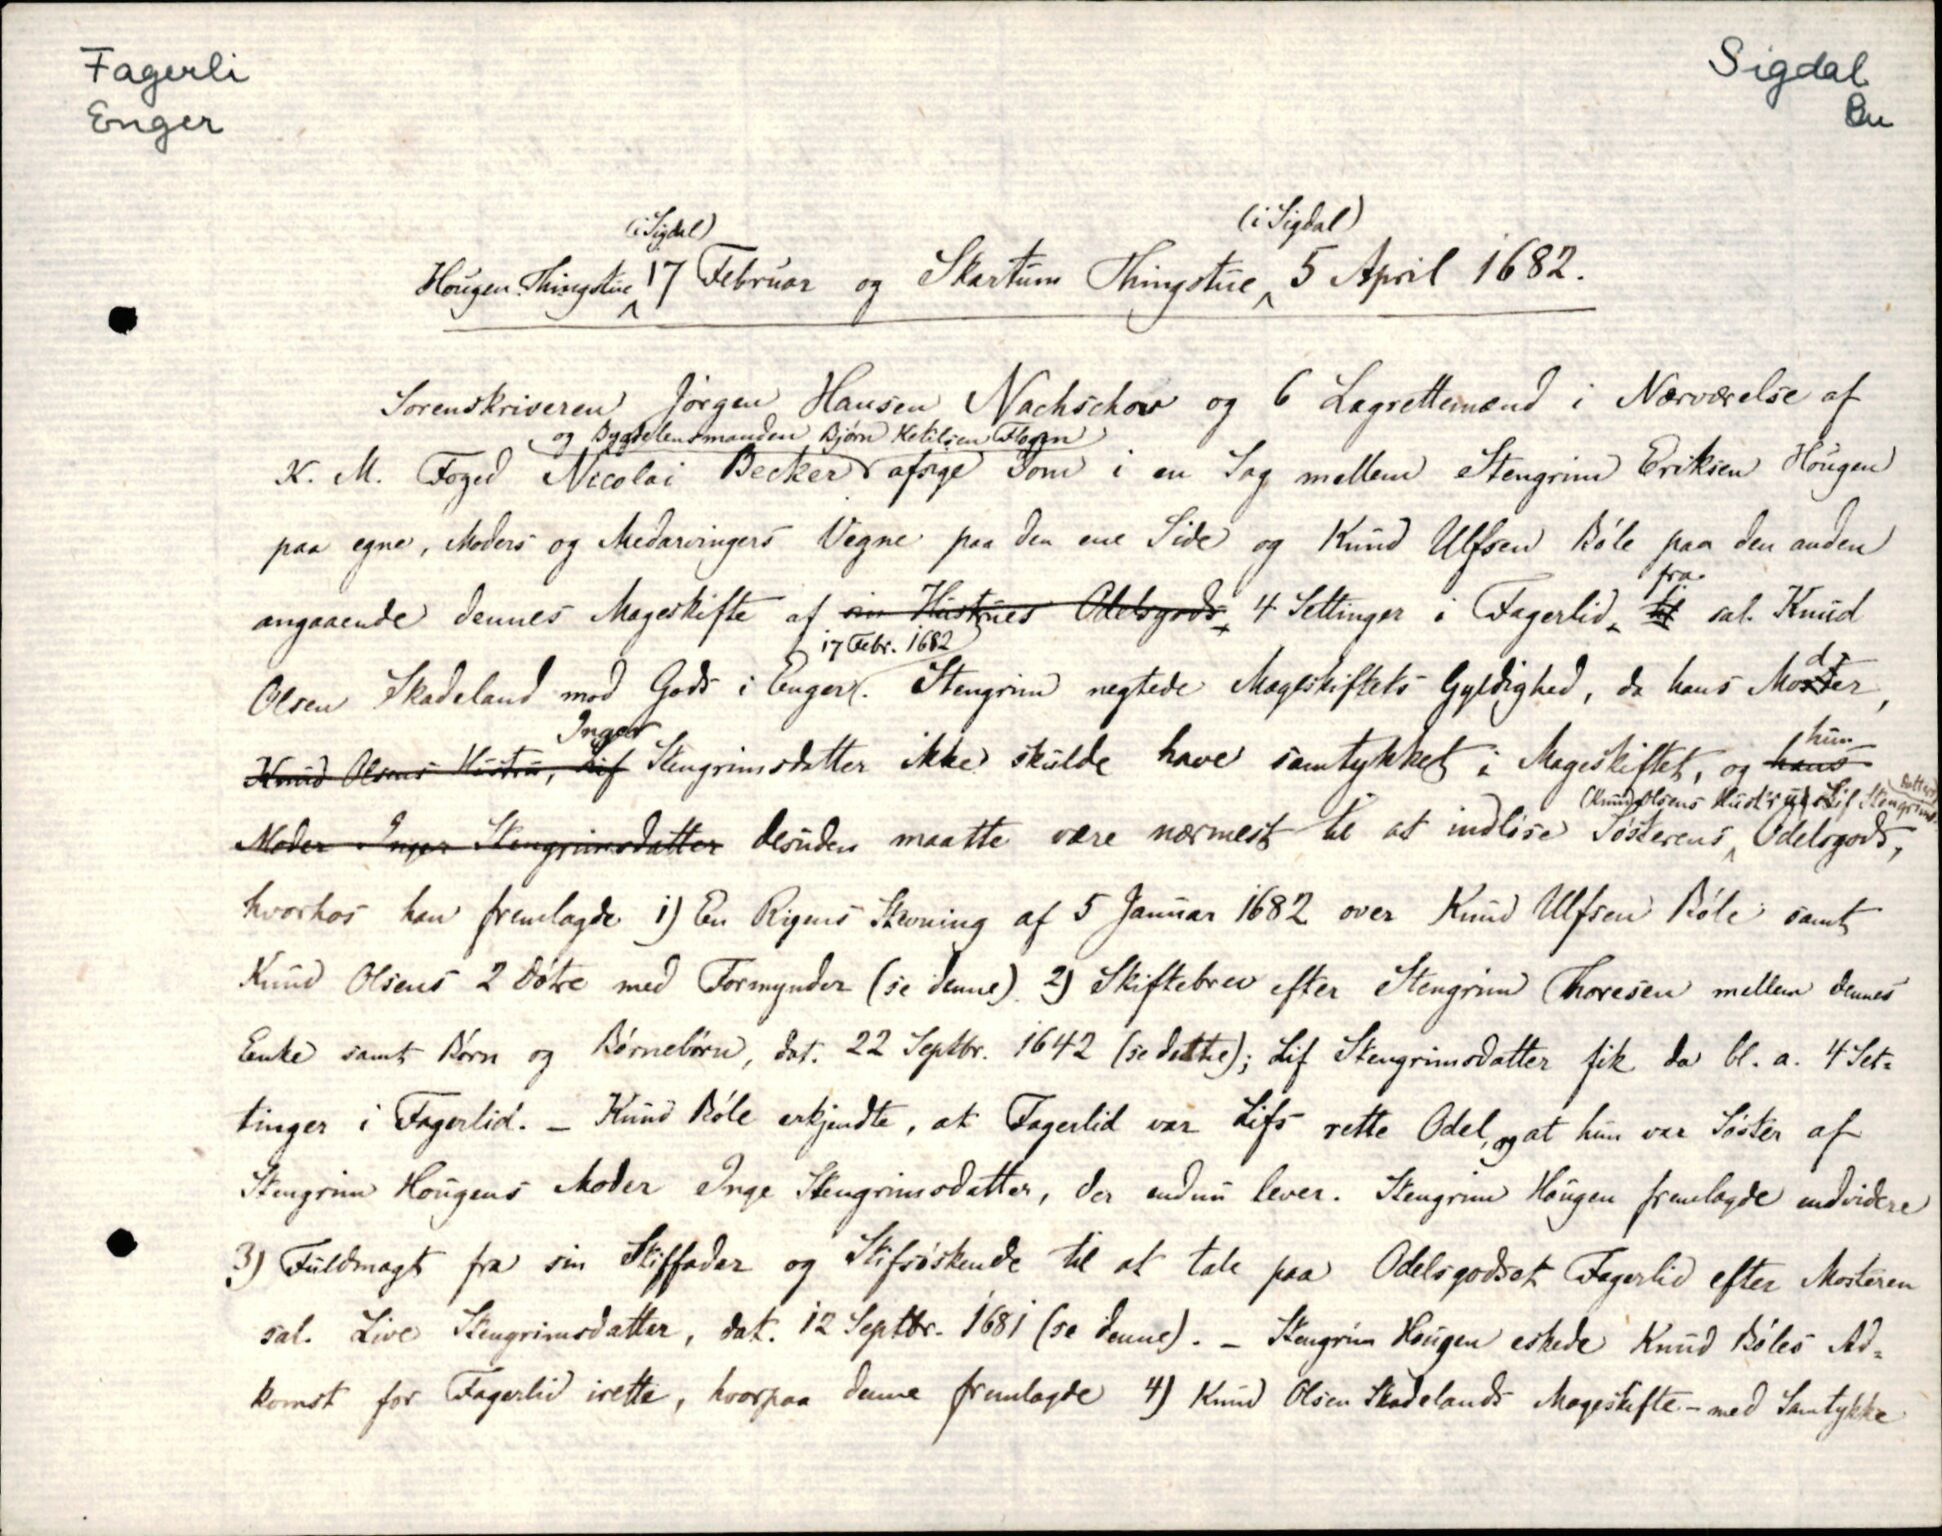 Fagerli
Enger
Sigdal
Bu
(i Sigdal) (i Sigdal)
Hougen Thingstue 17 Februar og Skartum Thingstue 5 April 1682.
Sorenskriveren Jörgen Hansen Nachschow og 6 Lagrettemænd i Nærværelse af
og Bygdelensmanden Björn Ketilsen Flagan
K. M. Foged Nicolai Becker afsige Dom i en Sag mellem Stengrim Eriksen Hougen
paa egne, Moders og Medarvingers Vegne paa den ene Side og Knud Ulfsen Böle paa den anden
fra
angaaende dennes Mageskifte af sin Hustrues Odelsgods 4 Settinger i Fagerlid, til sal. Knud
17 Febr. 1682
Olsen Skadeland mod Gods i Enger. Stengrim negtede Mageskiftets Gyldighed, da hans Moder,
Inger hun
Knud Olsens Hustru, Lif Stengrimsdatter ikke skulde have samtykket i Mageskiftet, og hans
(Knud Olsens Hustrues Lif Stengrimsdatters)
Moder Inger Stengrimsdatter desuden maatte være nærmest til at indlöse Sösterens Odelsgods,
hvorhos han fremlagde 1) En Rigens Stevning af 5 Januar 1682 over Knud Ulfsen Böle samt
Knud Olsens 2 Dötre med Formynder (se denne). 2) Skiftebrev efter Stengrim Thoresen mellem dennes
Enke samt Börn og Börnebörn, dat. 22 Septbr. 1642 (se dette); Lif Stengrimsdatter fik da bl. a. 4 Set=
tinger i Fagerlid. – Knud Böle erkjendte, at Fagerlid var Lifs rette Odel, og at hun var Söster af
Stengrim Hougens Moder Inge Stengrimsdatter, der endnu lever. Stengrim Hougen fremlagde endvidere
3) Fuldmagt fra sin Stiffader og Stifsöskende til at tale paa Odelsgodset Fagerlid efter Mosteren
sal. Live Stengrimsdatter, dat. 12 Septbr. 1681 (se denne). – Stengrim Hougen eskede Knud Böles Ad=
komst for Fagerlid irette, hvorpaa denne fremlagde 4) Knud Olsen Skadelands Mageskifte – med Samtykke